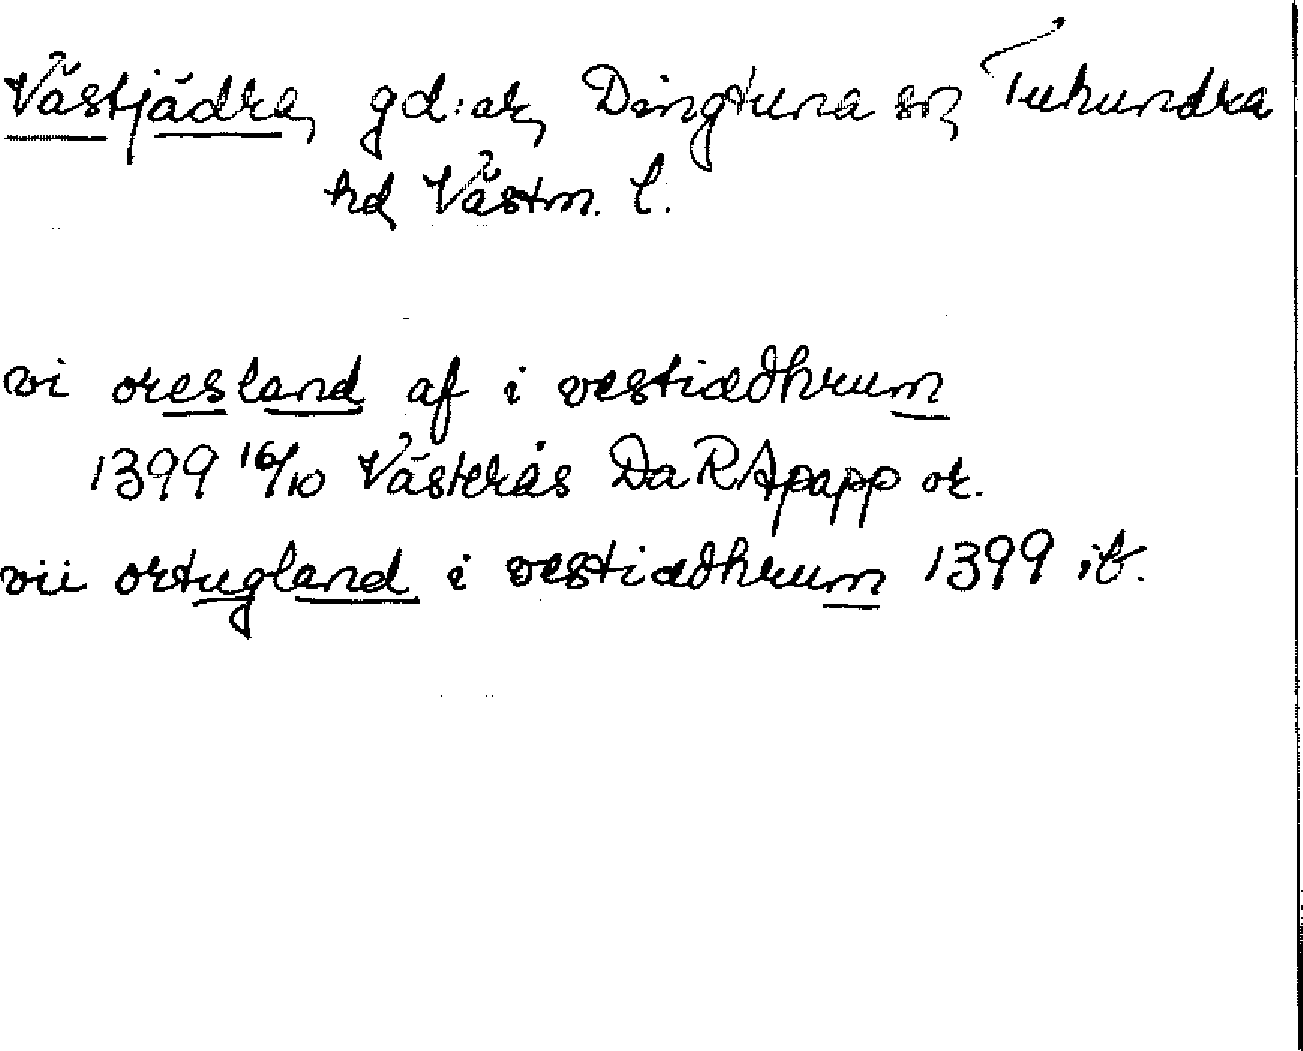 Västjädra, gd:ar, Dingtuna sn, Tuhundra
hd, Västm. l.
vi oresland af i vestiædhrum
1399 16/10 Västerås Da RApapp or.
vii ortugland i vestiædhrum 1399 ib.